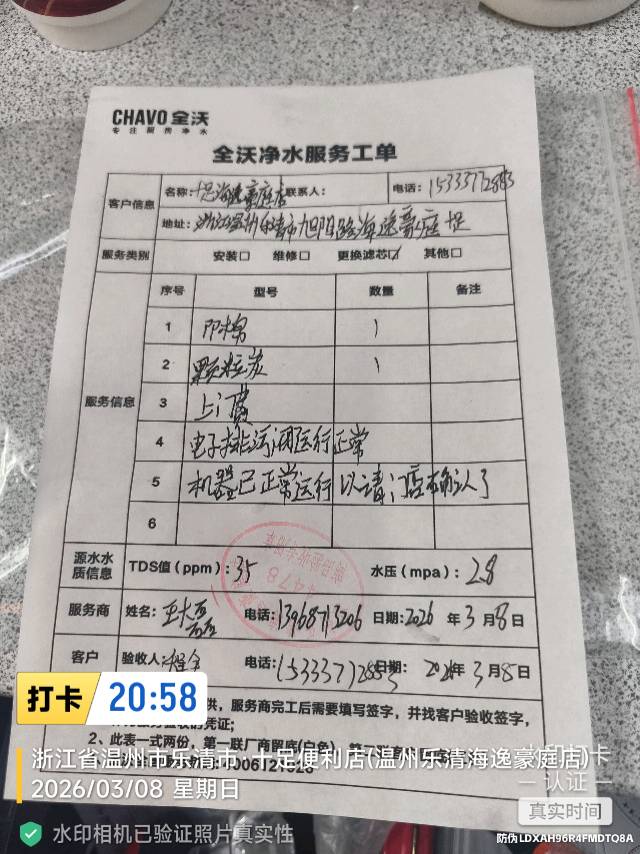 CHAVO 全沃
专注厨房净水
全沃净水服务工单
客户信息
名称：足海逸豪庭店 联系人： 电话：15333772853
地址：浙江温州乐清市旭阳路海逸豪庭 足
服务类别 安装□ 维修□ 更换滤芯☑ 其他□
服务信息
序号 型号 数量 备注
1 PP棉 1
2 颗粒炭 1
3 上门费
4 电子排污阀运行正常
5 机器已正常运行 以请门店确认了
6
源水水质信息 TDS值（ppm）：35 水压（mpa）：2.8
服务商 姓名：王大磊 电话：13968713206 日期：2026 年 3 月 8 日
客户 验收人： 电话：15333772853 日期：2026年 3 月 8 日
供，服务商完工后需要填写签字，并找客户验收签字，
的凭证；
2、此表一式两份，第一联厂商留存(白色)
打卡 20:58
浙江省温州市乐清市·十足便利店(温州乐清海逸豪庭店)
2026/03/08 星期日
水印相机已验证照片真实性
打卡
认证
真实时间
防伪LDXAH96R4FMDTQ8A